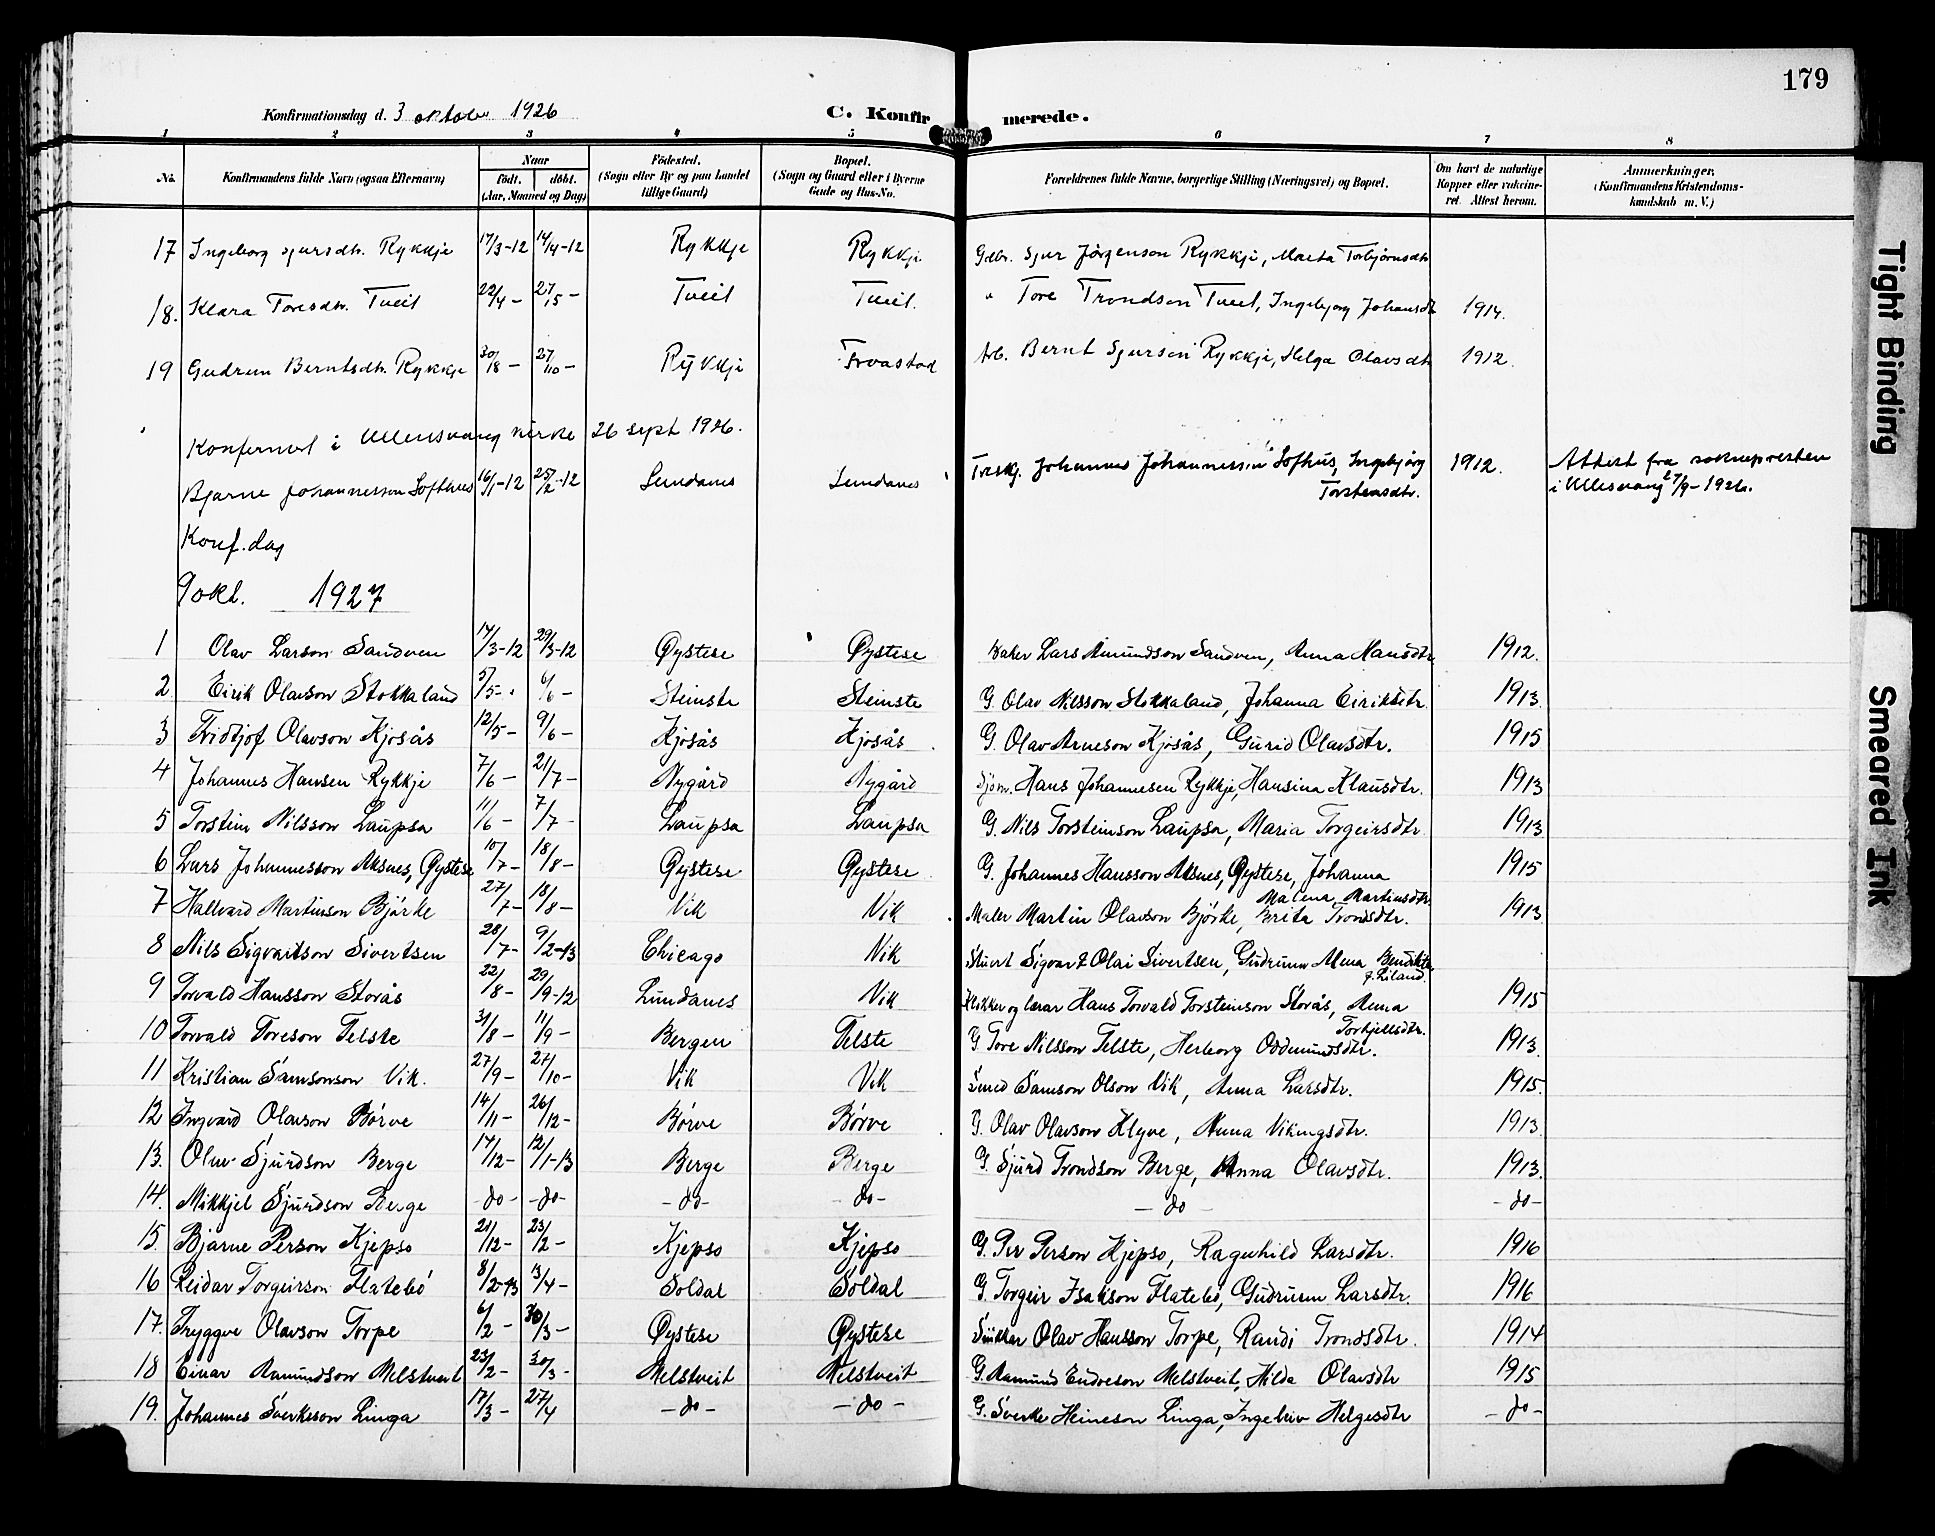 179
Konfirmationsdag d. 3 oktober 1926
C. Konfirmerede.
1 2 3 4 5 6 7 8
No. Konfirmandens fulde Navn (ogsaa Efternavn) Naar födt. döbt. (Aar, Maaned og Dag) Födested. (Sogn eller By og paa Landet tillige Gaard) Bopæl. (Sogn og Gaard eller i Byerne Gade og Hus-No. Forældrenes fulde Navne, borgerlige Stilling (Næringsvei) og Bopæl. Om havt de naturlige Kopper eller vaccineret. Attest herom. Anmærkninger, (Konfirmandens Kristendomskundskab m. V.)
17 Ingeborg Sjursdtr. Rykkje 17/3-12 14/4-12 Rykkje Rykkje Gdbr. Sjur Jørgenson Rykkje, Marta Torbjørnsdtr
18. Klara Toresdtr. Tveit 22/4 - 27/5 - Tveit Tveit. " Tore Trondson Tveit, Ingebjørg Johansdtr 1914.
19 Gudrun Berntsdtr. Rykkje 30/8 - 27/10 - Rykkje Trvastad Arb. Bernt Sjurson Rykkje, Helga Olavsdtr 1912.
Konfermert i Ullensvang kirke 26 sept 1926.
Bjarne Johannesson Lofthus 16/1-12 25/2-12 Lundanes Lundanes Johannes Johannesson Lofthus, Ingebjørg Torsteinsdtr. 1912. Attest fra soknepresten i Ullensvang 27/9-1926.
Konf. dag
9 okt. 1927
1 Olav Larson Sandven 17/3-12 29/3-12 Øystese Øystese Baker Lars Amundson Sandven, Anna Hansdtr 1912.
2 Eirik Olavson Stokkaland 5/5- 6/6- Steinstø Steinstø G. Olav Nilsson Stokkaland, Johanna Eiriksdtr. 1913.
3 Fridtjof Olavson Kjosås 12/5- 9/6- Kjosås Kjosås G. Olav Arneson Kjosås, Gurid Olavsdtr. 1915
4 Johannes Hansen Rykkje 7/6- 21/7- Nygård Nygård Sjøm. Hans Johannesen Rykkje, Hansina Klausdtr. 1913
5 Torstein Nilsson Laupsa 11/6- 7/7- Laupsa Laupsa G. Nils Torsteinson Laupsa, Maria Torgeirsdtr. 1913
6 Lars Johannesson Aksnes, Øystese 10/7- 18/8- Øystese Øystese G. Johannes Hansson Aksnes, Øystese, Johanna Malena Martinsdtr. 1915
7 Hallvard Martinson Bjørke 27/7- 18/8- Vik Vik Maler Martin Olavson Bjørke, Brita Trondsdtr. 1913
8 Nils Sigvartson Sivertsen 28/7- 9/2-13 Chicago Vik Stuert Sigvart Olai Sivertsen, Gudrunn Alena
9 Torvald Hansson Storås 22/8- 29/9-12 Lundanes Vik Klokker og lærar Hans Torvald Torsteinson Storås, Anna Torkjellsdtr. 1915
10 Torvald Toreson Telste 31/8- 11/9- Bergen Telste G. Tore Nilsson Telste, Herborg Oddmundsdtr. 1913.
11 Kristian Samsonson Vik. 27/9- 27/10- Vik Vik Smed Samson Olson Vik, Anna Larsdtr. 1915.
12 Ingvard Olavson Børve 14/11- 26/12- Børve Børve G. Olav Olavson Klyve, Anna Vikingsdtr. 1913.
13. Olav Sjurdson Berge 17/12- 12/1-13 Berge Berge G. Sjurd Trondson Berge, Anna Olavsdtr. 1913.
14. Mikkjel Sjurdson Berge -do- -do- -do- -do- -do- -do-
15. Bjarne Person Kjepso 21/12- 23/2- Kjepso Kjepso G. Per Person Kjepso, Ragnhild Larsdtr. 1916
16 Reidar Torgeirson Flatebø 8/2-13 3/4- Soldal Soldal G. Torgeir Isakson Flatebø, Gudrunn Larsdtr. 1916
17. Tryggve Olavson Torpe 6/2- 30/3- Øystese Øystese Snikkar Olav Hansson Torpe, Randi Trondsdtr. 1914
18 Einar Aamundson Melstveit 23/2- 30/3- Melstveit Melstveit G. Aamund Endreson Melstveit, Hilda Olavsdtr 1915
19. Johannes Sverkeson Linga 17/3- 27/4 -do- -do- G. Sverke Heineson Linga, Ingebriv Helgesdtr -do-
Tight Binding
Smeared Ink